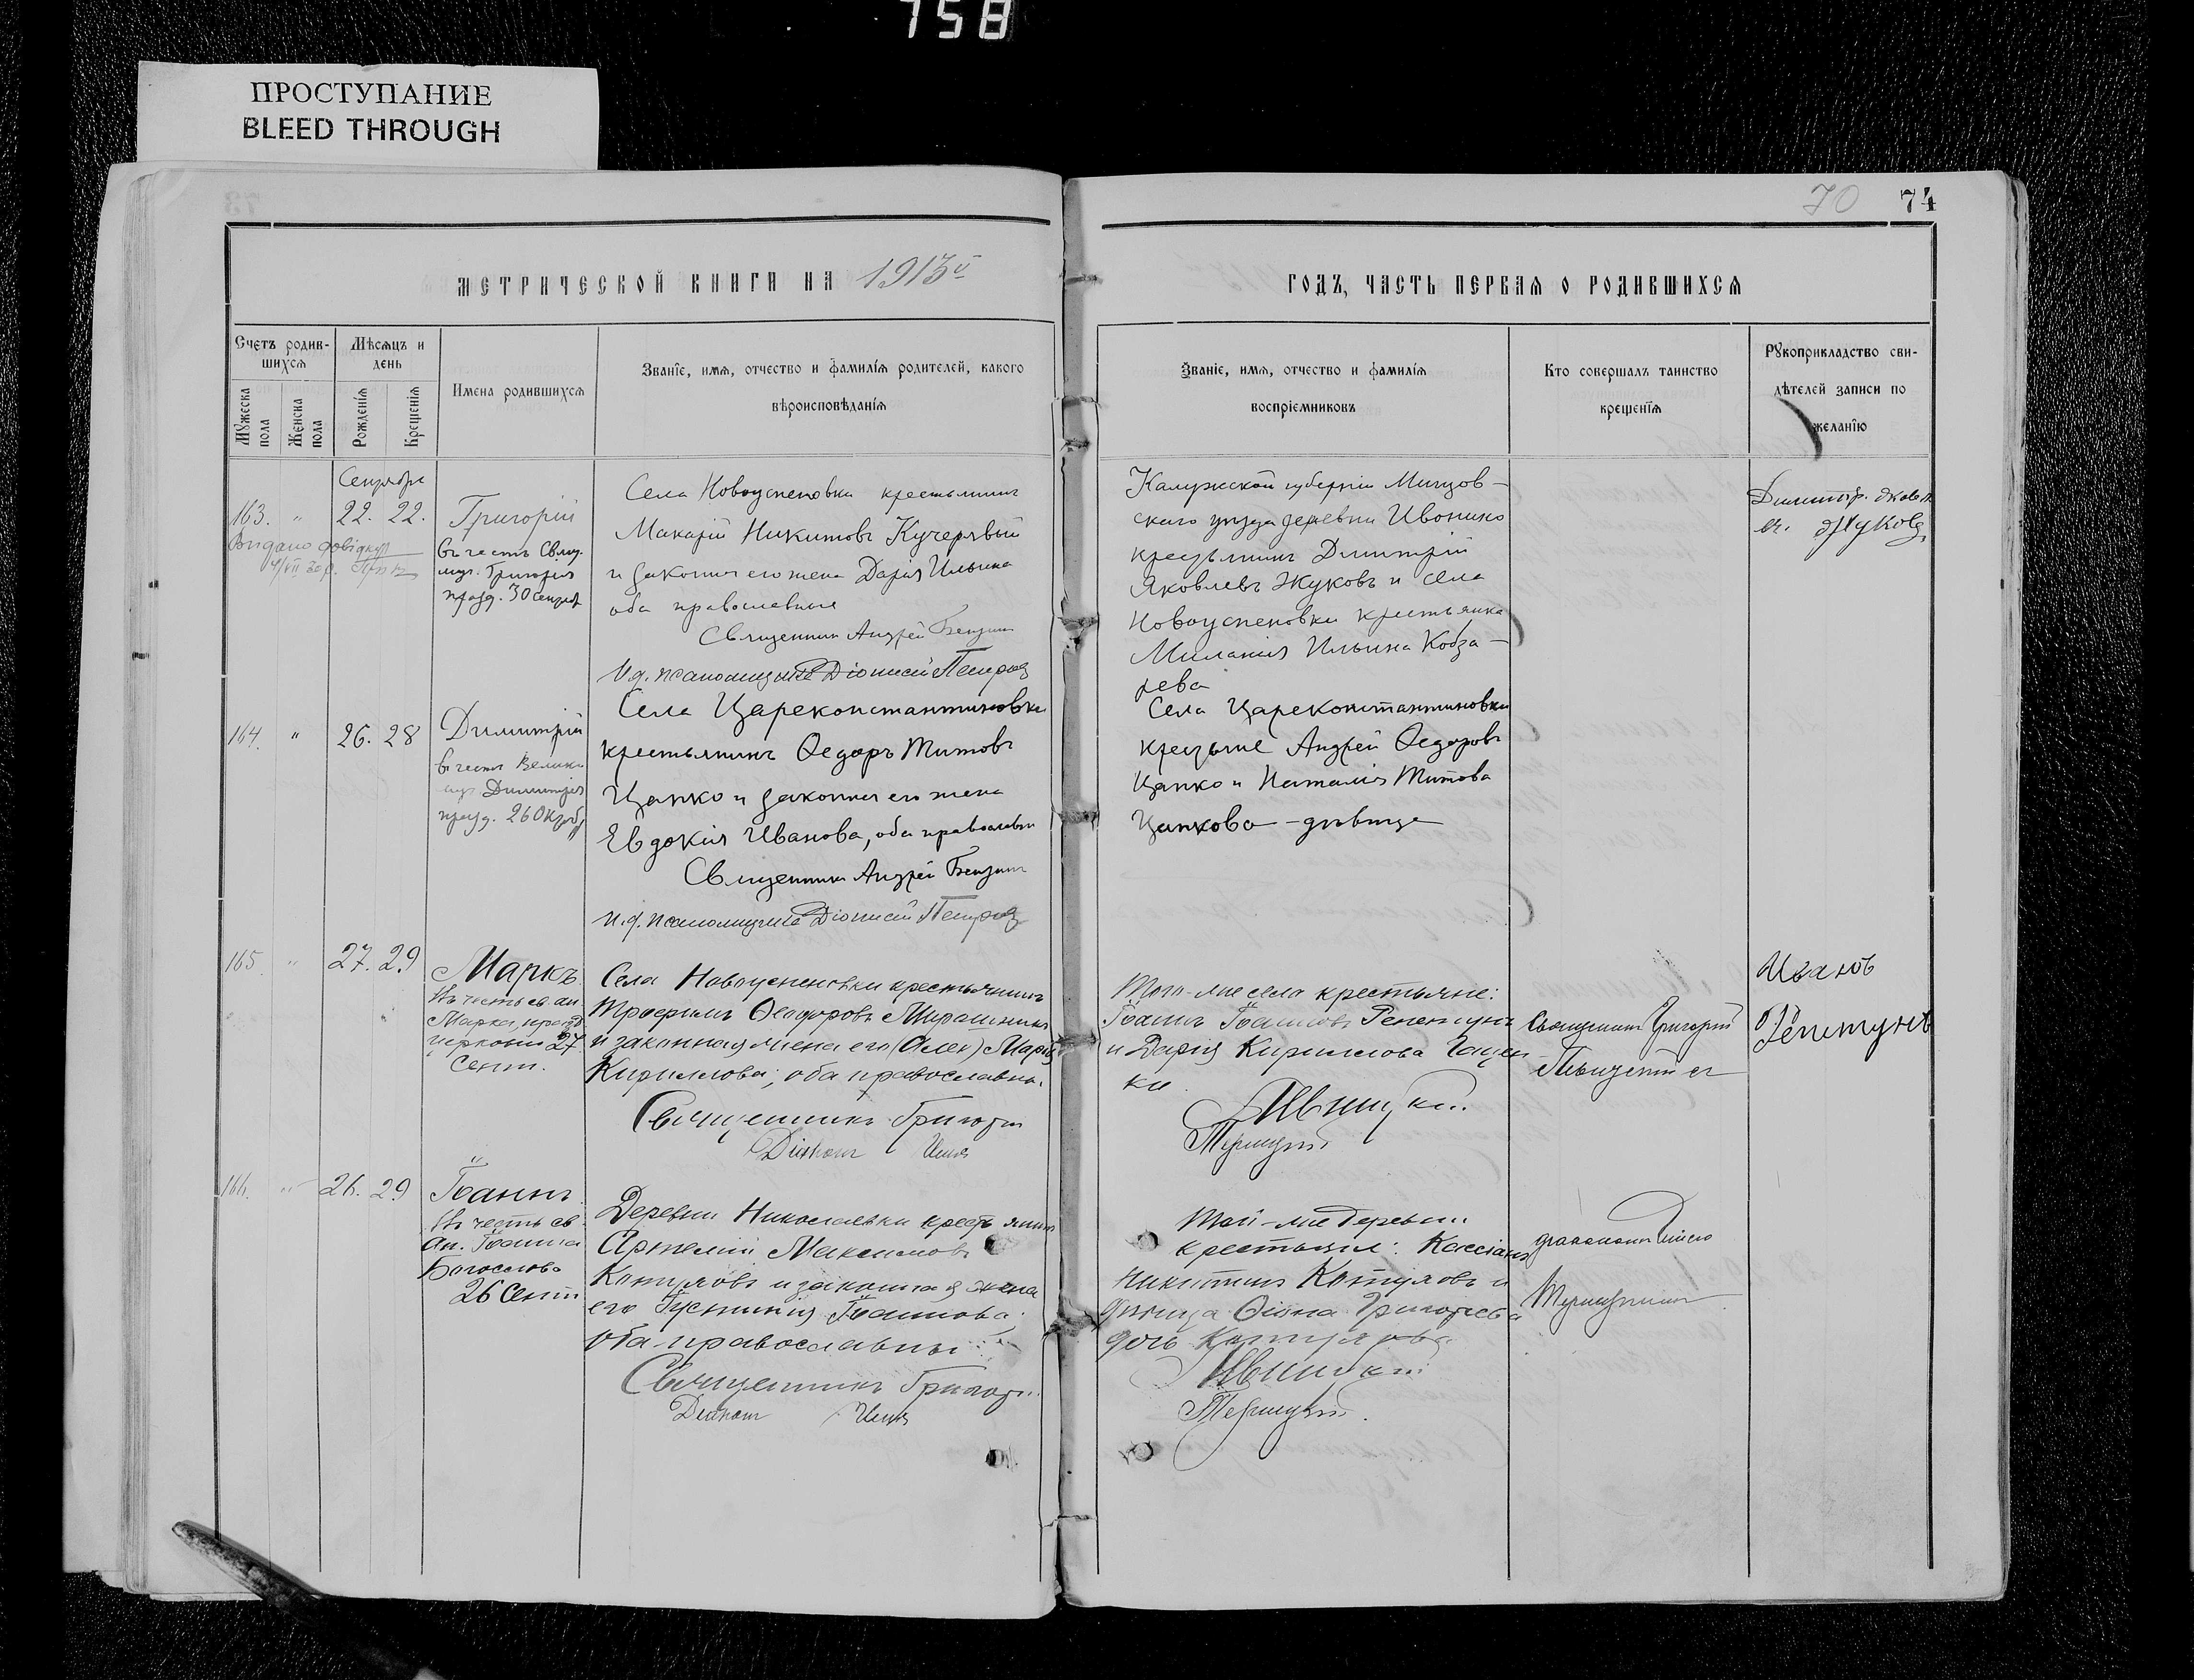 758
ПРОСТУПАНИЕ
BLEED THROUGH
70 74
МЕТРИЧЕСКОЙ КНИГИ НА 1913й
ГОДЪ, ЧАСТЬ ПЕРВАЯ О РОДИВШИХСЯ
Счетъ родив-
шихся
Мѣсяцъ и
день
Мужеска
пола
Женска
пола
Рожденія
Крещенія
Имена родившихся
Званіе, имя, отчество и фамилія родителей, какого
вѣроисповѣданія
Званіе, имя, отчество и фамилія
воспріемниковъ
Кто совершалъ таинство
крещенія
Рукоприкладство сви-
дѣтелей записи по
желанію
Сентября
163. " 22. 22.
Видано довідку
Григорій
въ честь Свящ.
муч. Григорія
празд. 30 Сентяб
Села Новоуспеновки крестьянинъ
Макарій Никитовъ Кучерявый
и законная его жена Дарія Ильина
оба православные
Священникъ Андрей
И.д. псаломщика Діонисій Петров
Калужской губерніи Мищов-
скаго уезда деревни Ивонино
крестьянинъ Димитрій
Яковлевъ Жуковъ и села
Новоуспеновки крестьянка
Миланія Ильина Кобза-
рева
Димитр. Яковл.
Жуковъ
164. " 26. 28
Димитрій
въ честь Велик.
муч. Димитрія
празд. 26 Октяб
Села Цареконстантиновки
крестьянинъ Ѳедоръ Титовъ
Цапко и законная его жена
Евдокія Иванова, оба православн
Священникъ Андрей
и.д. псаломщика Діонисій Петров
Села Цареконстантиновки
крестьяне Андрей Ѳедоровъ
Цапко и Наталія Титова
Цапкова - дѣвица
165. " 27. 29
Маркъ
Въ честь св. ап
Марка, празд.
церковью 27
Сент.
Села Новоуспеновки крестьянинъ
Трофимъ Ѳеодоровъ Мирошник
и законная жена его Марія
Кириллова; оба православны.
Священникъ Григорій
Діаконъ Илія
Того-же села крестьяне:
Іоаннъ Іоанновъ Репетунъ
и Дарія Кириллова Гацен-
ки
Терлецкій
Священникъ Григорій
Иванов
Репетунъ
166. " 26. 29
Іоаннъ
Въ честь св
Ап. Іоанна
Богослова
26 Сент
Деревни Николаевки крестьянинъ
Артемій Максимовъ
Котляровъ и законная жена
его Іустинія Іоаннова;
оба православны
Священникъ Григорій
Діаконъ Илія
Той-же деревни
крестьяне: Кассіанъ
Никитинъ Котляровъ и
дѣвица Ѳіона Григорьева
дочь Котлярова
Терлецкій